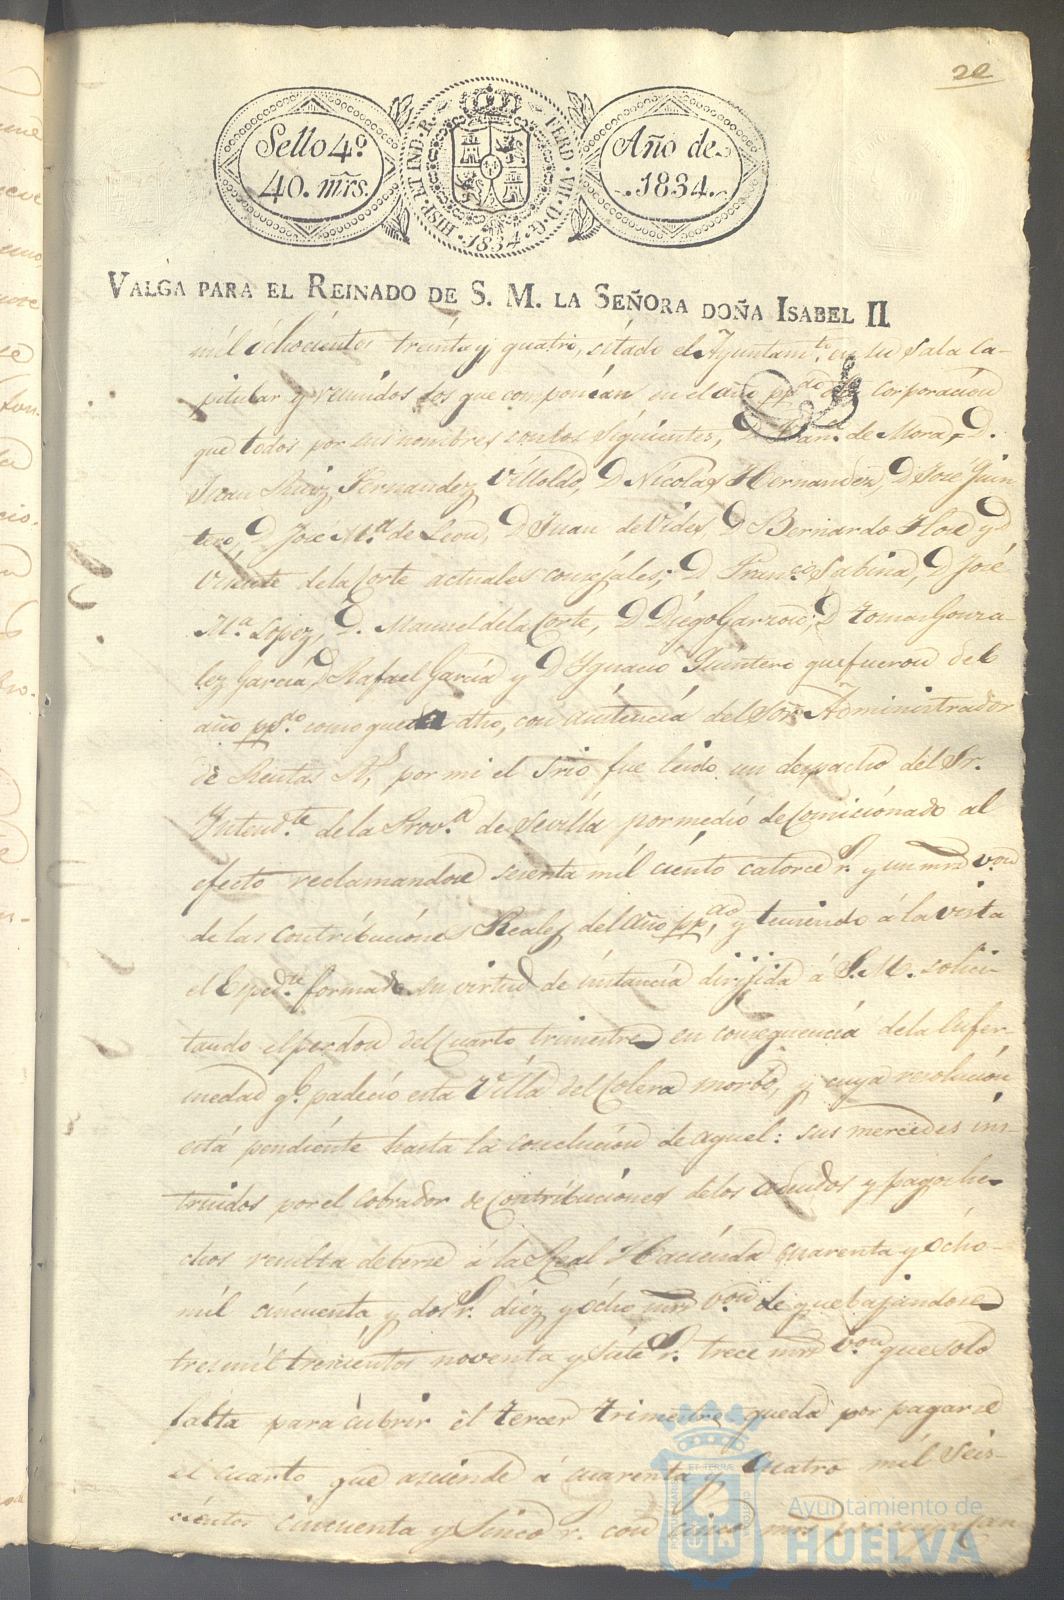 20
Sello 4º
40. mrs.
HISP. ET IND. R. FERD. VII. D. G. 1834
Año de
1834.
VALGA PARA EL REINADO DE S. M. LA SEÑORA DOÑA ISABEL II
mil ochocientos treinta y quatro, sitado el Ayuntamto. en su sala ca-
pitular y reunidos los que componian en el año ppdo. corporacion
que todos por sus nombres son los siguientes, D. de Mora, D.
Juan Ruiz Fernandez Villoldo, D Nicolas Hernandez, D José Quin
tero, D José Ma. de Leon, D Juan de Vides, D Bernardo Flor y D
Vicente de la Corte actuales consejales; D Franco. Sabina, D José
Ma. Lopez, D. Manuel de la Corte, D Diego Garzon, D Tomas Gonza-
lez Garcia, D Rafael Garcia y D Ygnacio Quintero que fueron del
año ppdo. como queda dho, con asistencia del Sor. Administrador
de Rentas Rs., por mi el Srio fue leido un despacho del Sr.
Yntendte. de la Prova. de Sevilla por medio de Comicionado al
efecto reclamandose sesenta mil ciento catorce rs. y un mrs von.
de las contribuciones Reales del año ppdo, y teniendo á la vista
el Espedte. formado en virtud de instancia dirijida á S. M. solici-
tando el perdon del Cuarto trimestre en consequencia de la Enfer-
medad qe. padeció esta Villa del Colera morbo, y cuya resolucion
está pendiente hasta la conclucion de aquel: sus mercedes ins-
truidos por el Cobrador de Contribuciones de los y pagos he-
chos resulta deberse á la Real Hacienda quarenta y ocho
mil cincuenta y dos rs. diez y ocho mrs von. de que bajandose
tres mil trescientos noventa y siete rs. trece mrs von que solo
falta para cubrir el tercer trimestre queda por pagarse
el cuarto que asciende á cuarenta y Quatro mil Seis
cientos cincuenta y Sinco rs. con cinco mrs
Ayuntamiento de
HUELVA